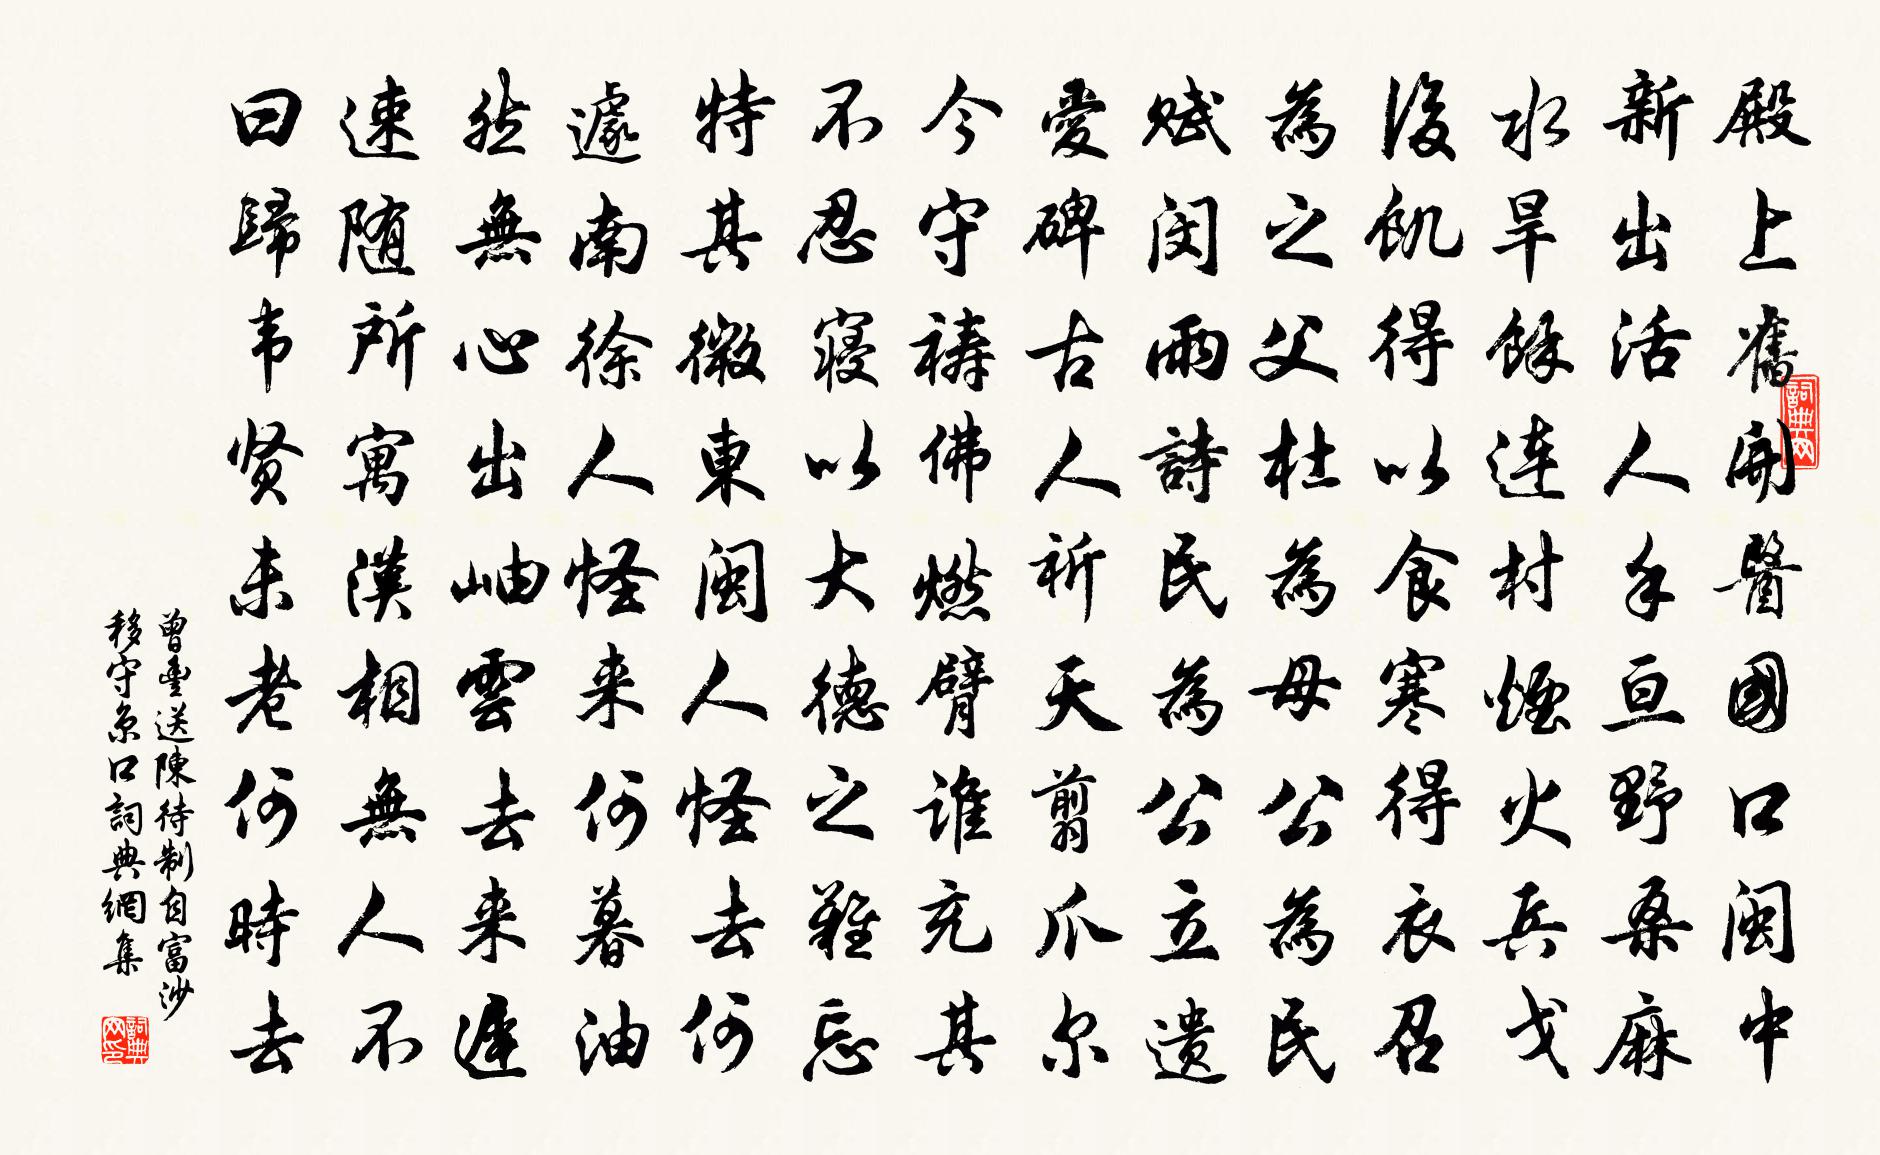 殿上舊開醫國口閩中
新出活人手亘野桑麻
水旱餘連村煙火兵戈
後飢得以食寒得衣召
為之父杜為母公為民
賦閔雨詩民為公立遺
愛碑古人祈天剪爪尔
今守禱佛燃臂誰充其
不忍寢以大德之難忘
特其微東閩人怪去何
遽南徐人怪来何暮油
然無心出岫雲去来遲
速随所寓漠相無人不
曰歸韦贤未老何時去
曾豐送陳待制自富沙
移守京口詞典網集
詞典网
詞典网印